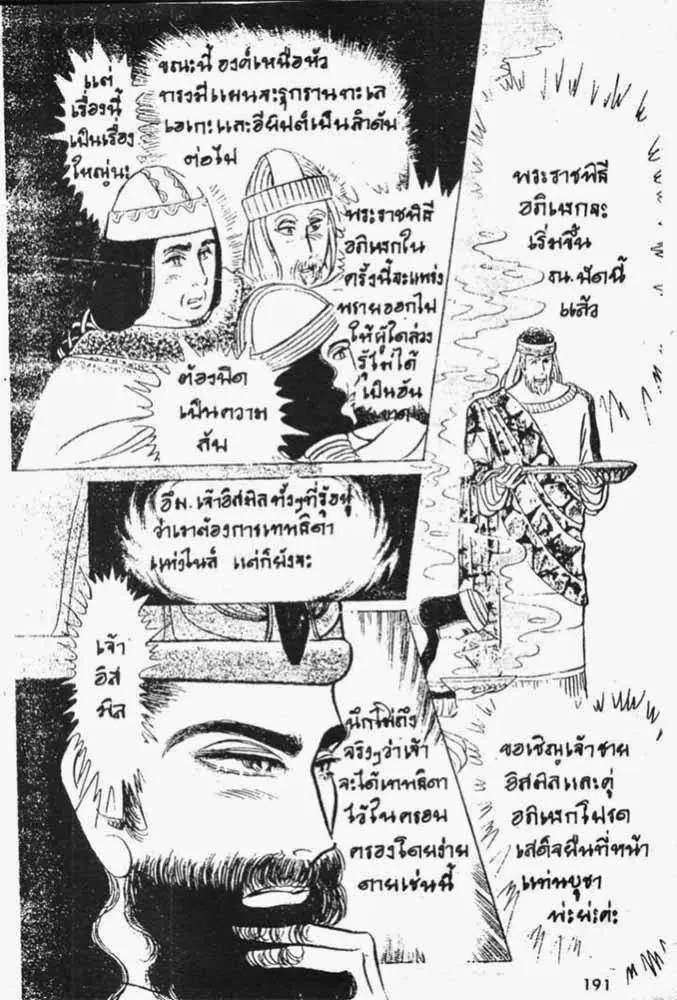 แต่
เรื่องนี้
เป็นเรื่อง
ใหญ่นะ
ขณะนี้ องค์เหนือหัว
ทรงมีแผนจะรุกรานทะเล
เอเกะและอียิปต์เป็นลำดับ
ต่อไป
พระราชพิธี
อภิเษกใน
ครั้งนี้จะแพร่ง
พรายออกไป
ให้ผู้ใดล่วง
รู้ไม่ได้
เป็นอัน
ขาด
ต้องปิด
เป็นความ
ลับ
พระราชพิธี
อภิเษกจะ
เริ่มขึ้น
ณ.บัดนี้
แล้ว
อืม.เจ้าอิสมิลทั้งๆที่รู้อยู่
ว่าเราต้องการเทพธิดา
แห่งไนล์ แต่ก็ยังจะ
เจ้า
อิส
มิล
นึกไม่ถึง
จริงๆว่าเจ้า
จะได้เทพธิดา
ไว้ในครอบ
ครองโดยง่าย
ดายเช่นนี้
ขอเชิญเจ้าชาย
อิสมิลและคู่
อภิเษกโปรด
เสด็จยืนที่หน้า
แท่นบูชา
พ่ะย่ะค่ะ
191